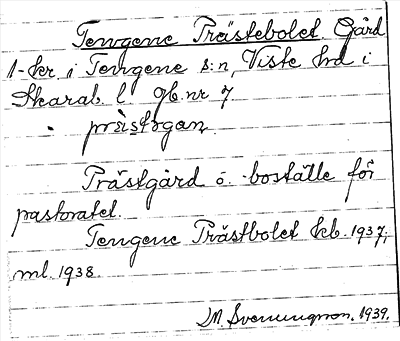 Tengene Prästebolet. Gård
1-kr. i Tengene s:n, Viste hd i
Skarab. l. gb. nr 7
prästəgan
Prästgård o. boställe för
pastoratet.
Tengene Prästbolet kb. 1937,
ml. 1938.
M. Svenungson. 1939.